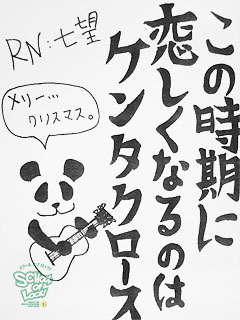 この時期に
恋しくなるのは
ケンタクロース
RN:七望
メリー…
クリスマス。
SCHOOL
OF
LOCK!